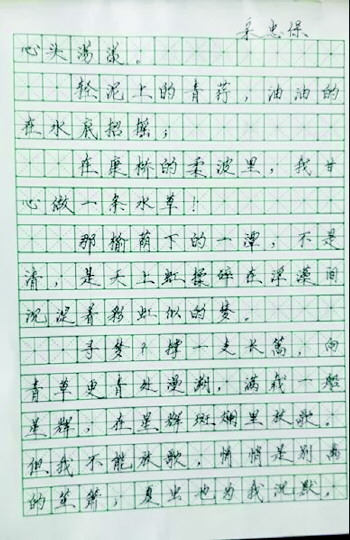 忠保
心头荡漾。
泥上的青荇,油油的
在水底招摇;
在康桥的柔波里,我甘
心做一条水草!
那榆荫下的一潭,不是
清,是天上虹揉碎在浮藻间
沉淀着彩虹似的梦。
寻梦?撑一支长篙,向
青草更青处漫溯,满载一船
星辉,在星辉斑斓里放歌。
但我不能放歌,悄悄是别离
的笙箫,夏虫也为我沉默,